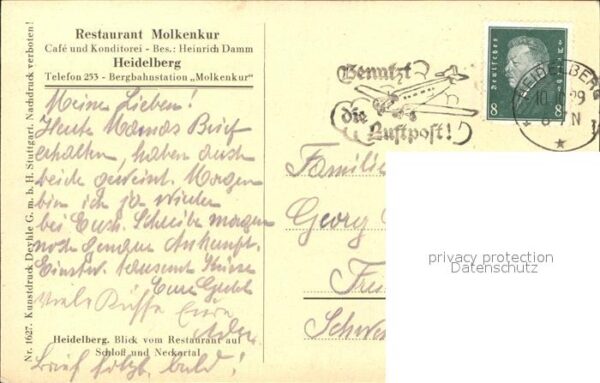 Restaurant Molkenkur
Café und Konditorei - Bes.: Heinrich Damm
Heidelberg
Telefon 253 - Bergbahnstation „Molkenkur“
Meine Lieben!
Heute Mamas Brief
erhalten, haben auch
beide geweint. Morgen
bin ich ja wieder
bei Euch. Schreibe morgen
noch genaue Ankunft.
Einstw. tausend Küsse
Eure
Viele Küsse Eure
Heidelberg. Blick vom Restaurant auf
Schloß und Neckartal
Brief folgt bald!
Nr. 1627. Kunstdruck Deyhle G. m. b. H. Stuttgart. Nachdruck verboten!
Benutzt
die Luftpost!
Deutsches
8 8
HEIDELBERG
10. 29
N
Familie
Georg
privacy protection
Datenschutz